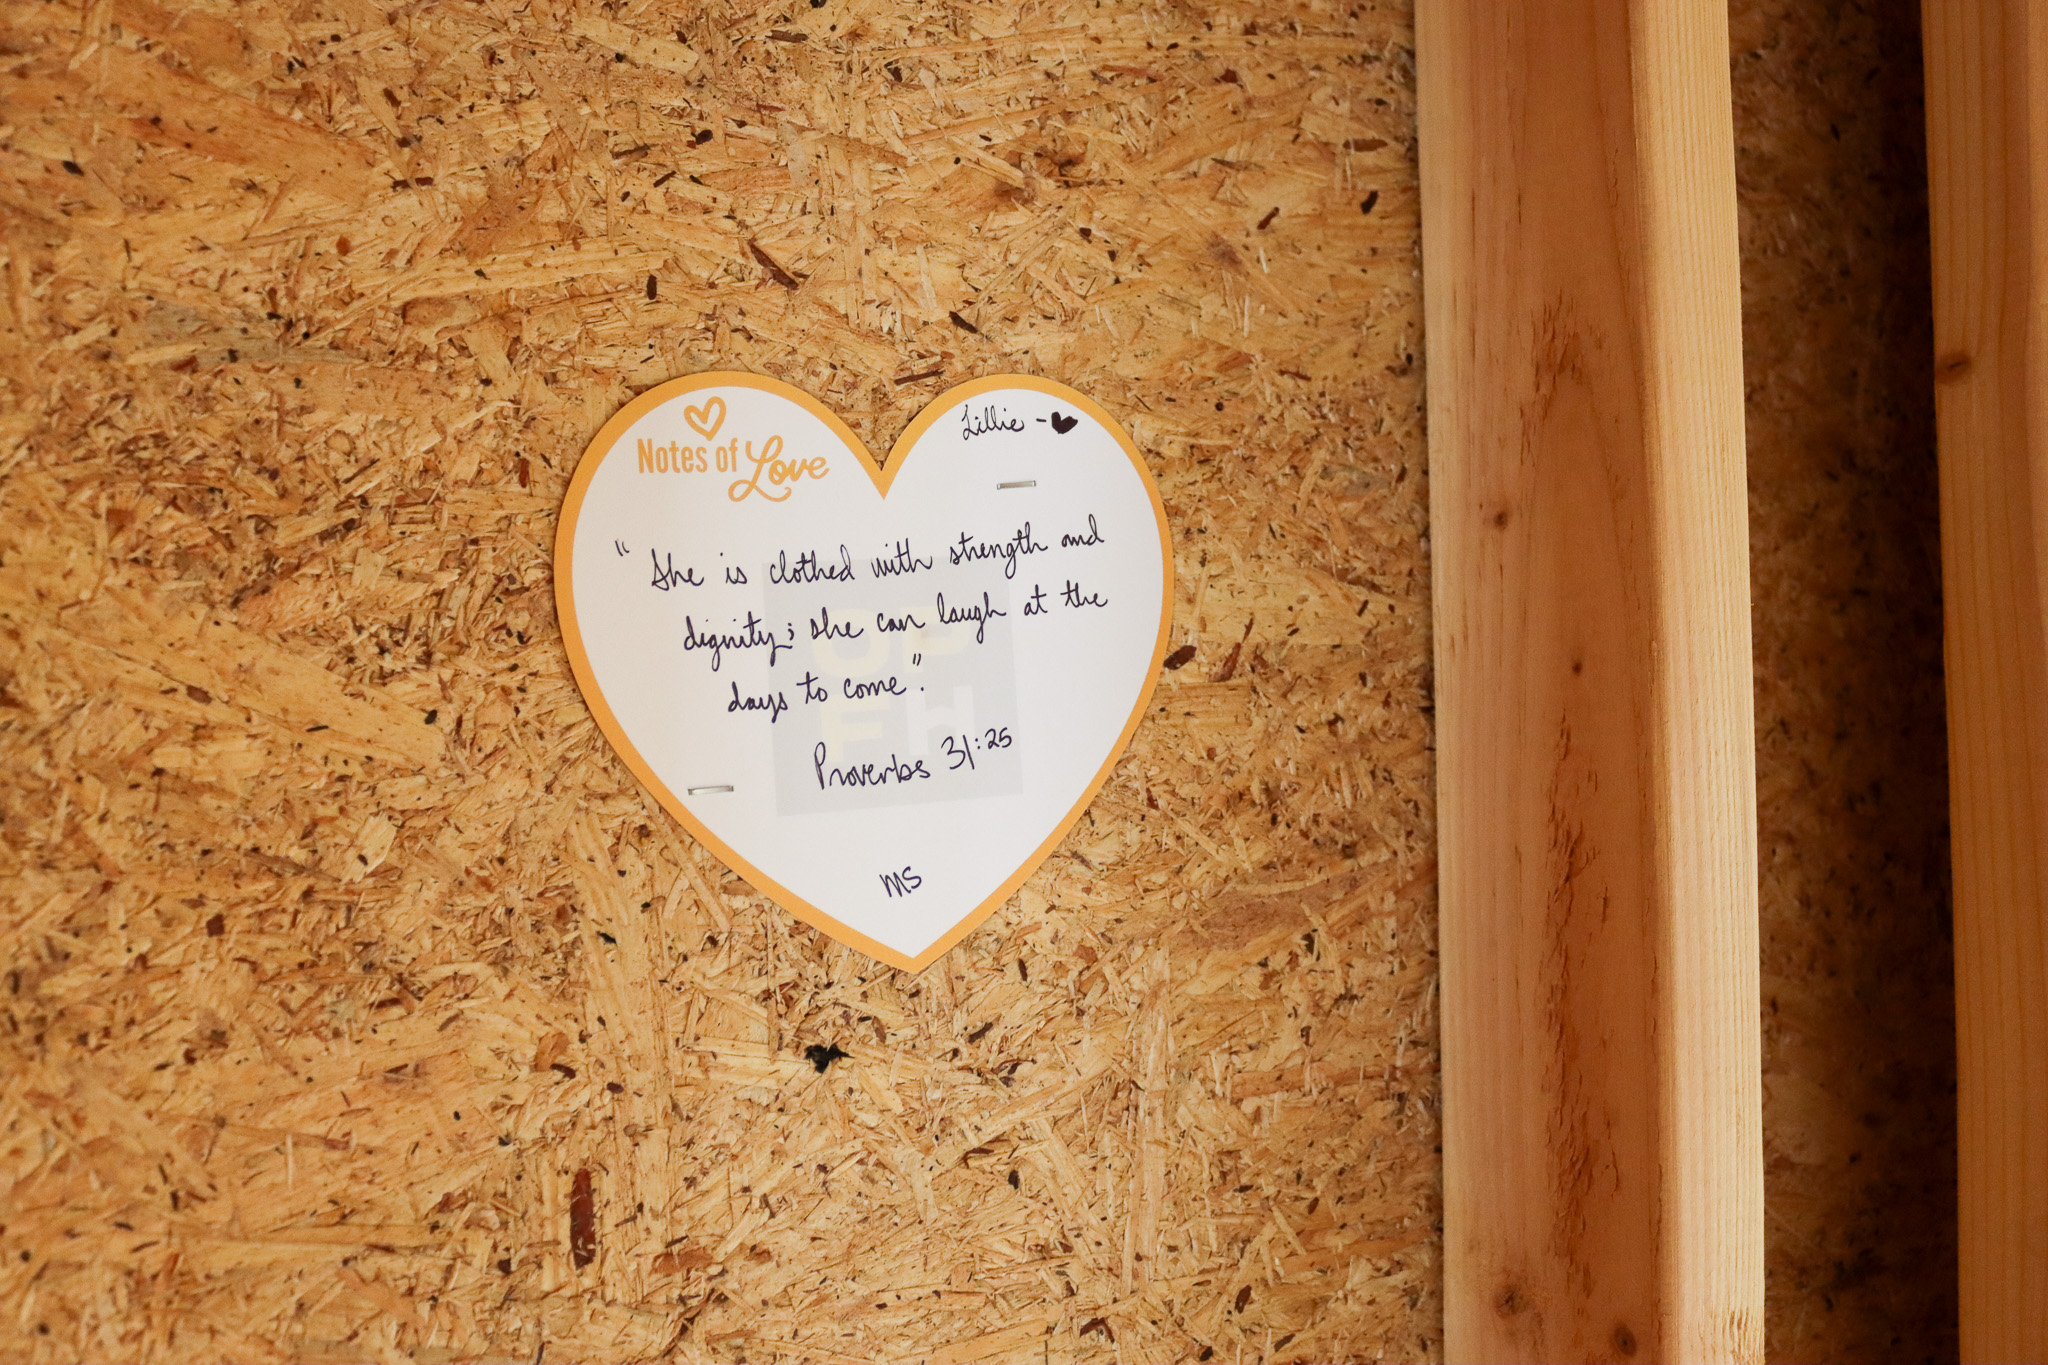 Notes of Love
Lillie -
" She is clothed with strength and
dignity; she can laugh at the
days to come".
Proverbs 31:25
MS